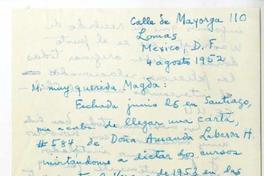 Calle de Mayorga 110
Lomas
México, D. F.
4 agosto 1952
Mi muy querida Magda:
Fechada junio 26 en Santiago,
me acaba de llegar una carta,
#584, de Doña Amanda Labarca H.
invitándome a dictar dos cursos
de 1953 en las